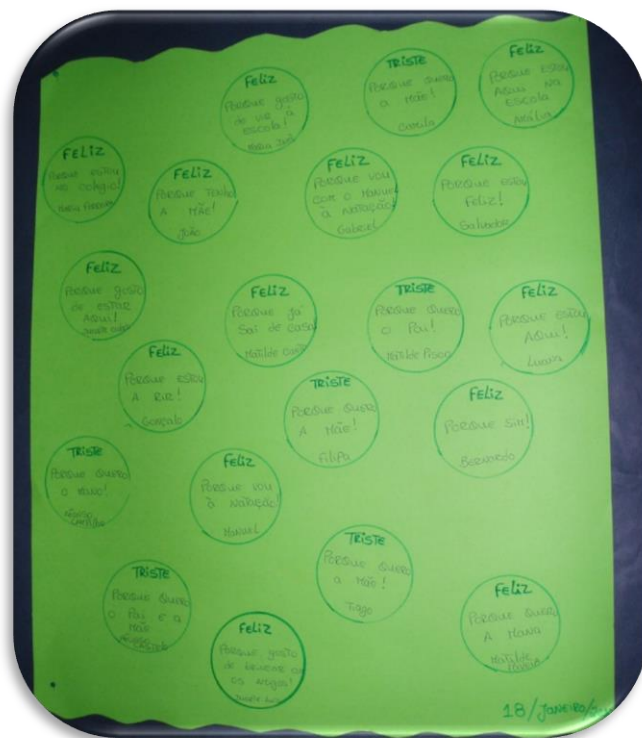 FELIZ
PORQUE gosto
de vir à
escola!
TRISTE
PORQUE QUERO
A MÃE!
Camila
FELIZ
PORQUE ESTOU
AQUI NA
ESCOLA
FELIZ
PORQUE ESTOU
NO COLÉGIO!
FELIZ
PORQUE TENHO
A MÃE!
João
FELIZ
PORQUE VOU
COM O MANUEL
À NATAÇÃO!
Gabriel
FELIZ
PORQUE ESTOU
FELIZ!
Salvador
FELIZ
PORQUE gosto
DE ESTAR
AQUI!
FELIZ
PORQUE já
Saí de casa
Matilde
TRISTE
PORQUE QUERO
O PAI!
Matilde
FELIZ
PORQUE ESTOU
AQUI!
Luana
FELIZ
PORQUE ESTOU
A RIR!
Gonçalo
TRISTE
PORQUE QUERO
A MÃE!
Filipa
FELIZ
PORQUE SIM!
BERNARDO
TRISTE
PORQUE QUERO
O
Afonso
FELIZ
PORQUE VOU
À NATAÇÃO!
MANUEL
TRISTE
PORQUE QUERO
O Pai e a
Mãe
Afonso
TRISTE
PORQUE QUERO
a Mãe!
Tiago
FELIZ
PORQUE gosto
de brincar com
os amigos!
FELIZ
PORQUE QUERO
A MANA
Matilde
18/JANEIRO/